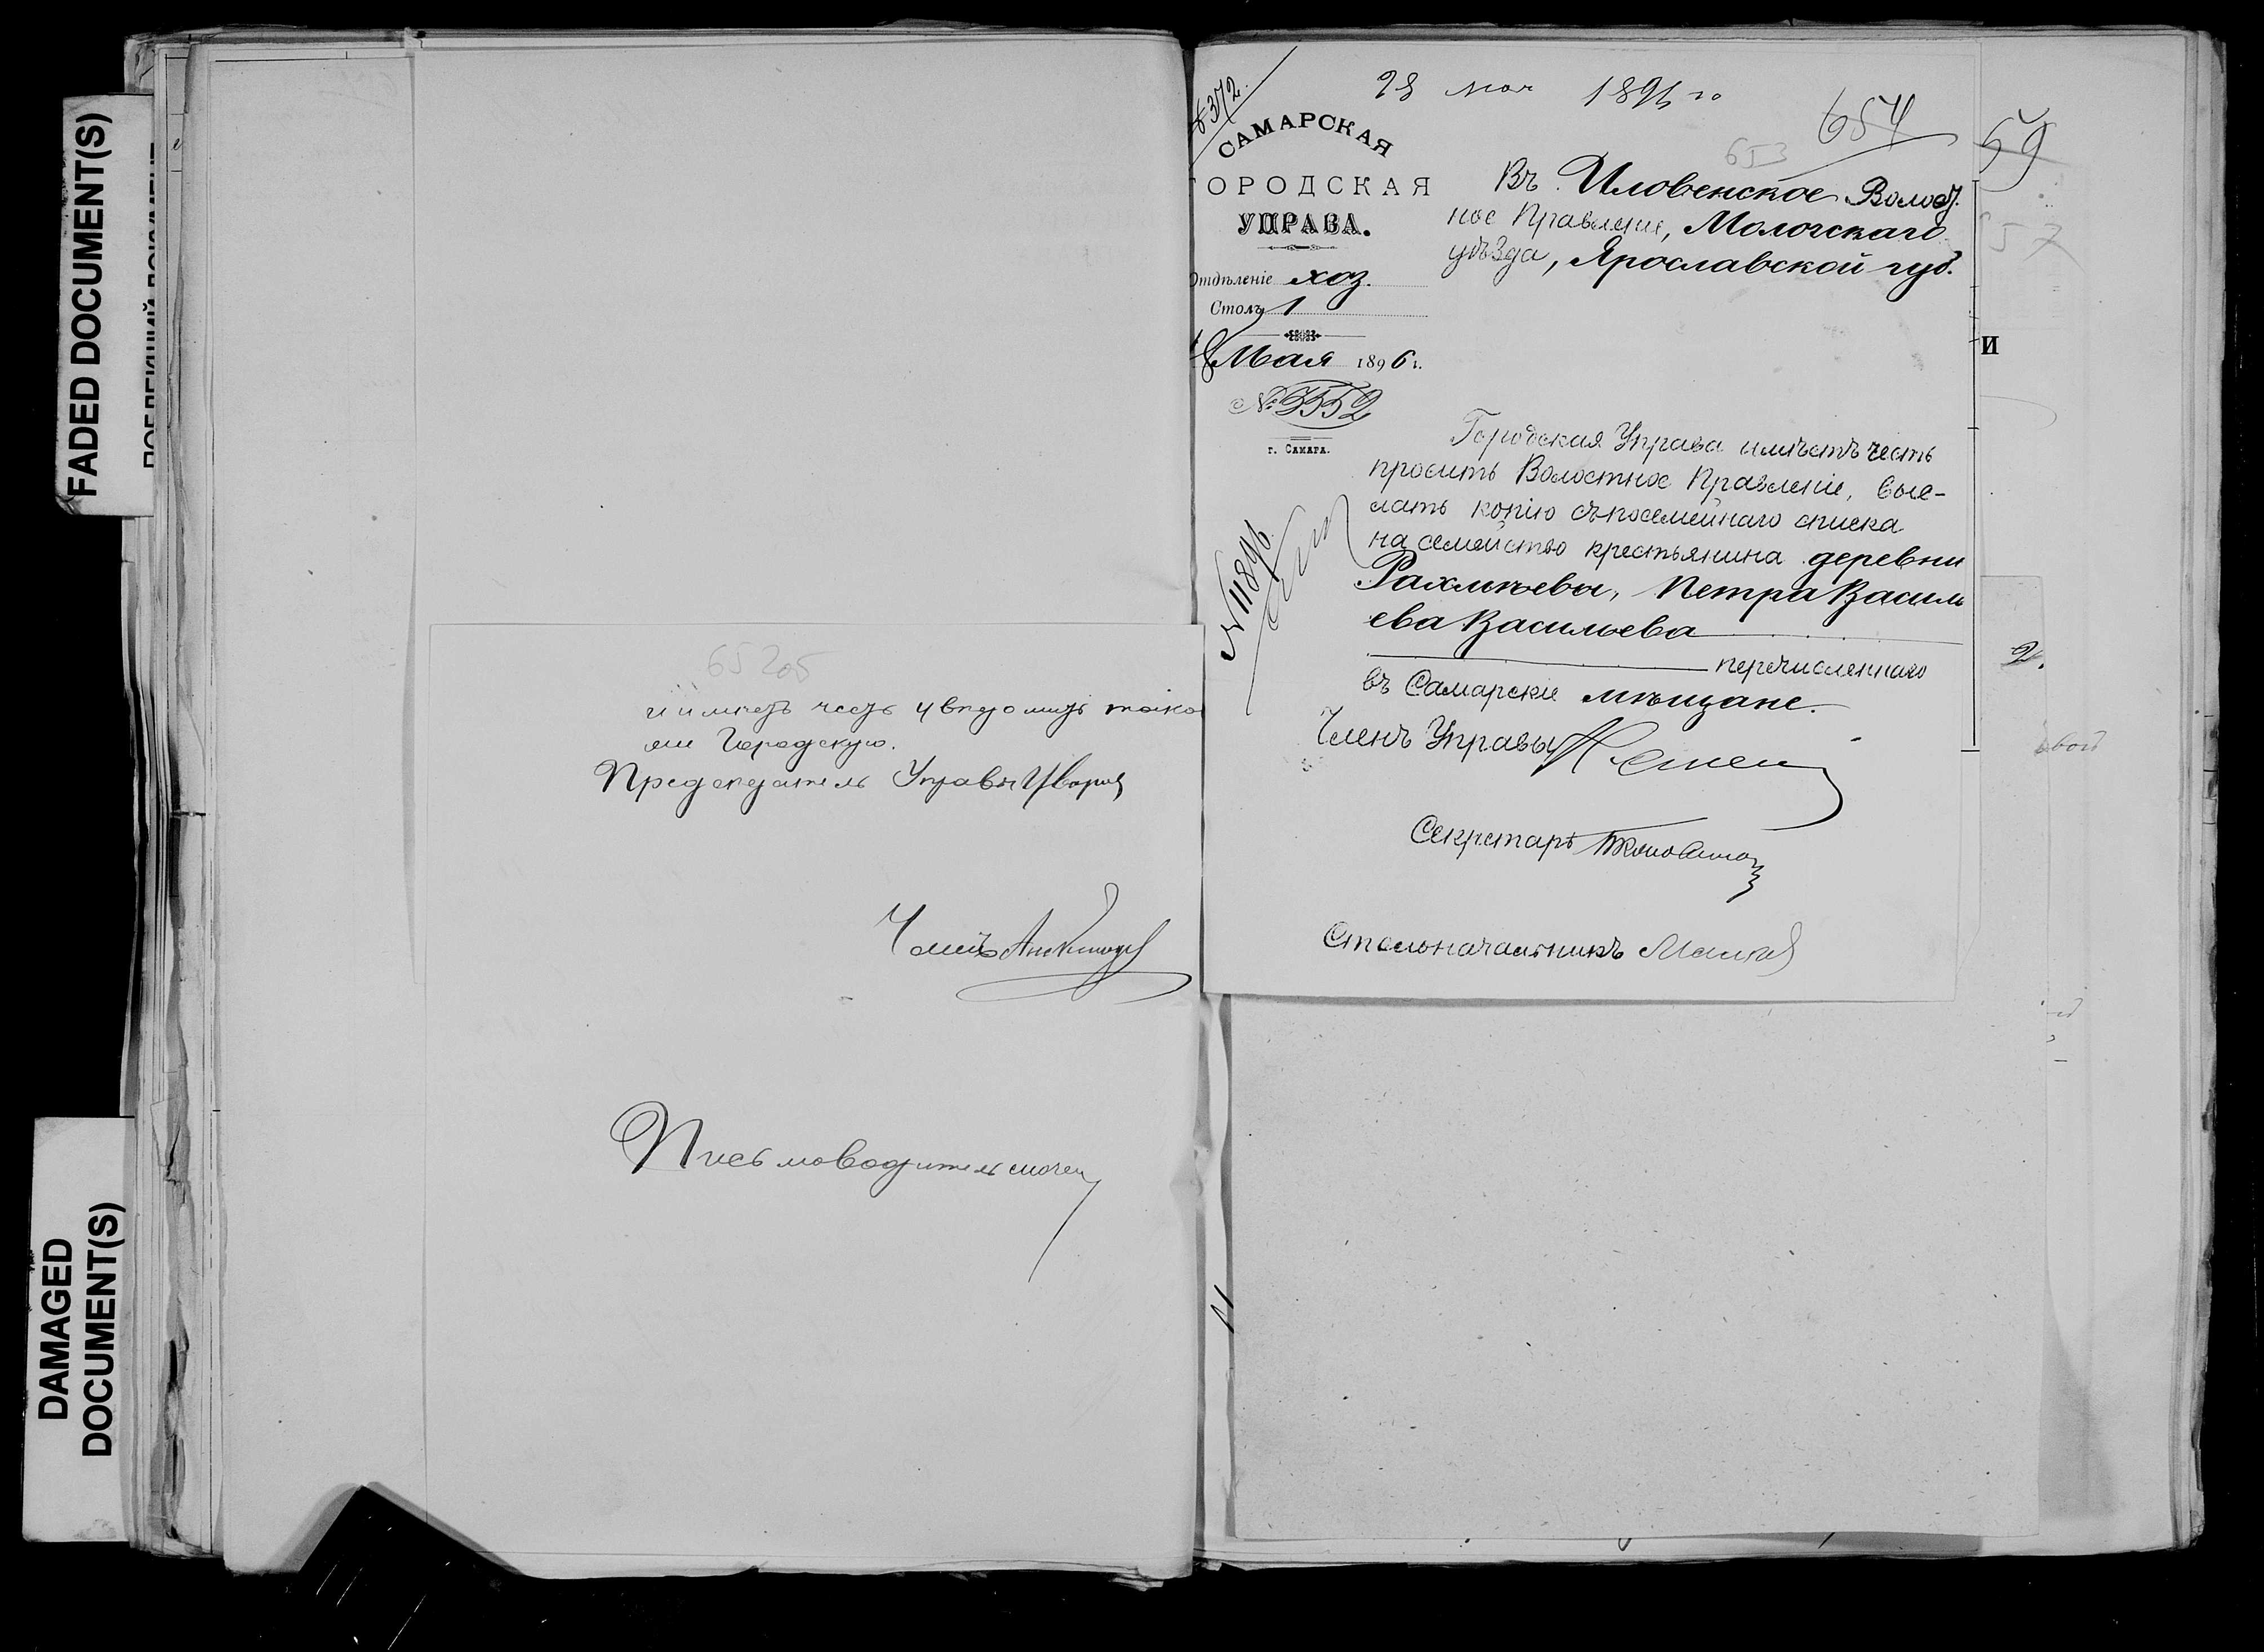 FADED DOCUMENT(S)
DAMAGED
DOCUMENT(S)
652об
и имѣетъ честь увѣдомить
Городскую.
Предсѣдатель Управы
Членъ
Письмоводитель
28 мая 1896 го
654
653
59
57
САМАРСКАЯ
ГОРОДСКАЯ
УПРАВА.
Отдѣленіе хоз.
Столъ 1
Мая 1896 г.
№ 3552
г. САМАРА.
Въ Иловенское Волост.
ное Правленіе, Мологскаго
уѣзда, Ярославской губ.
Городская Управа имѣетъ честь
просить Волостное Правленіе, выс-
лать копію съ посемейнаго списка
на семейство крестьянина деревни
Рахмѣева, Петра Василь
ева Васильева
перечисленнаго
въ Самарскіе мѣщане.
Членъ Управы
Секретарь
Столоначальникъ
И
2.